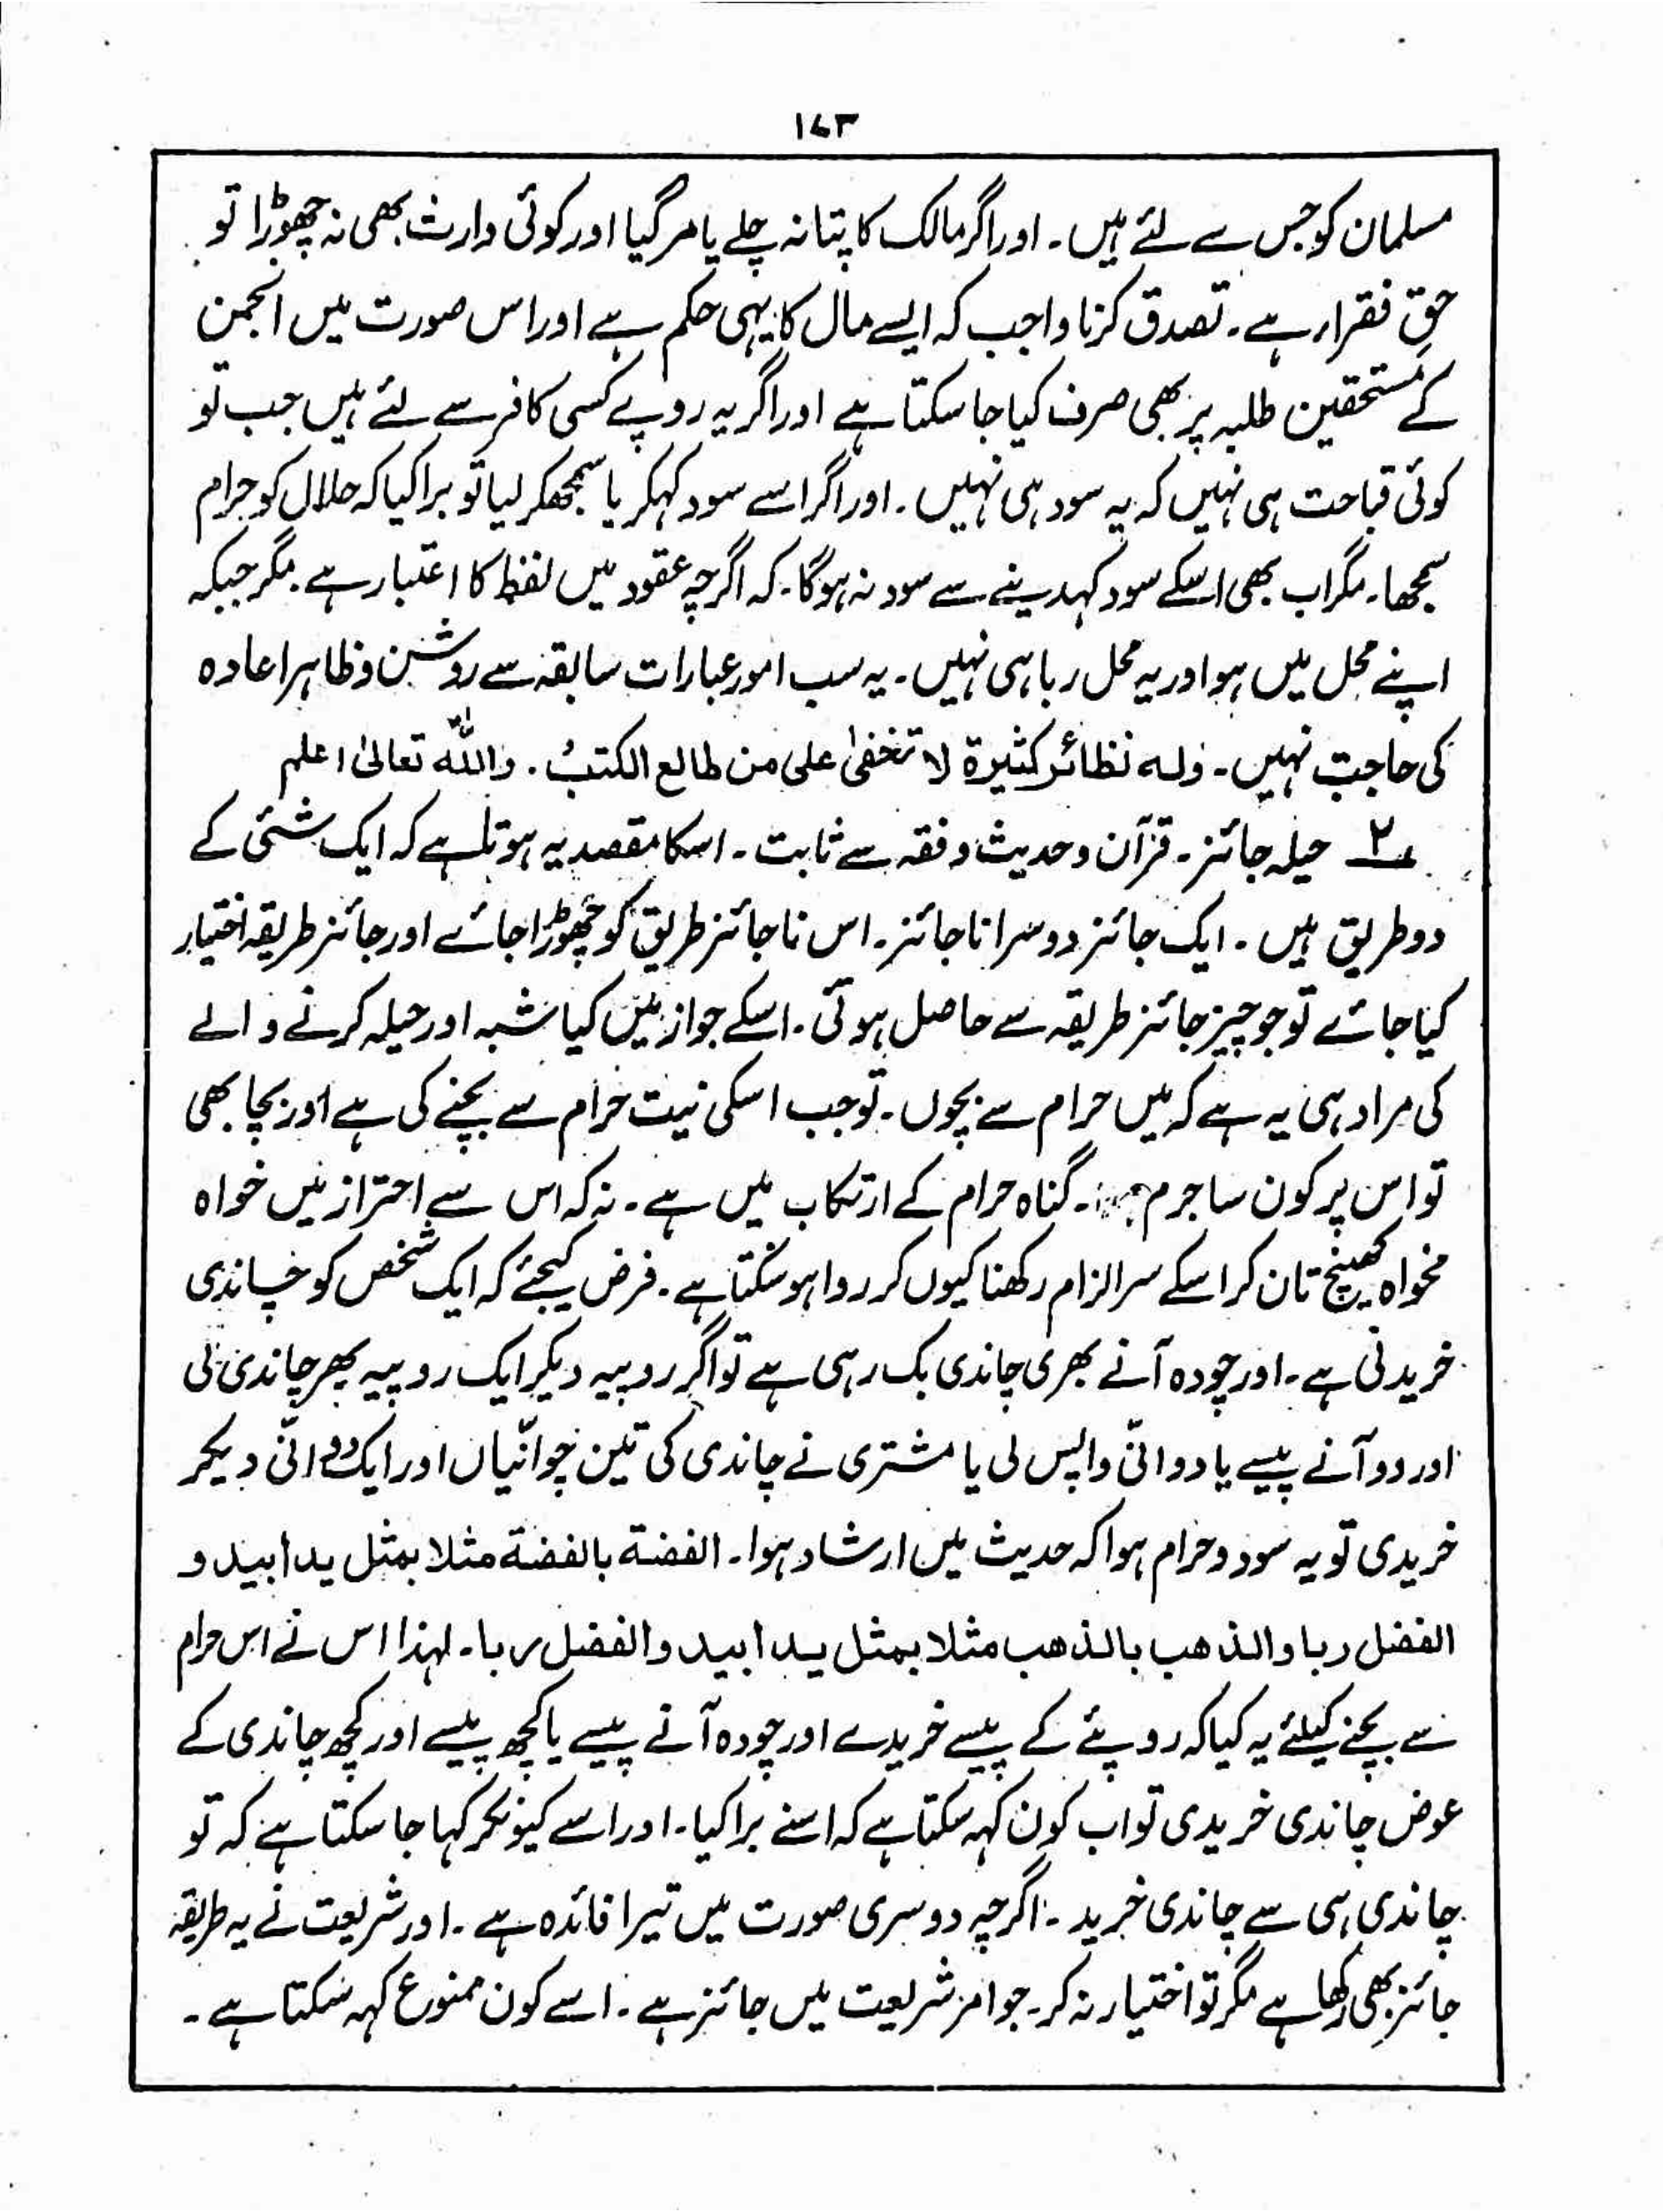 ۱۷۳
مسلمان کو جس سے لئے ہیں۔ اور اگر مالک کا پتا نہ چلے یا مر گیا اور کوئی وارث بھی نہ چھوڑا تو
حق فقراء ہے۔ تصدق کرنا واجب کہ ایسے مال کا یہی حکم ہے اور اس صورت میں انجمن
کے مستحقین طلبہ پر بھی صرف کیا جا سکتا ہے اور اگر یہ روپے کسی کافر سے لئے ہیں جب تو
کوئی قباحت ہی نہیں کہ یہ سود ہی نہیں۔ اور اگر اسے سود کہکر یا سمجھکر لیا تو برا کیا کہ حلال کو حرام
سمجھا۔ مگر اب بھی اسکے سود کہدینے سے سود نہ ہوگا۔ کہ اگرچہ عقود میں لفظ کا اعتبار ہے۔ مگر جبکہ
اپنے محل میں ہو اور یہ محل ربا ہی نہیں۔ یہ سب امور عبارات سابقہ سے روشن و ظاہر اعادہ
کی حاجت نہیں۔ ولہ نظائر کثیرة لا تخفیٰ علی من طالع الکتب۔ واللہ تعالیٰ اعلم
۲؎ حیلہ جائز۔ قرآن و حدیث و فقہ سے ثابت۔ اسکا مقصد یہ ہوتا ہے کہ ایک شئی کے
دو طریق ہیں۔ ایک جائز دوسرا ناجائز۔ اس ناجائز طریق کو چھوڑا جائے اور جائز طریقہ اختیار
کیا جائے تو جو چیز جائز طریقہ سے حاصل ہوئی۔ اسکے جواز میں کیا شبہ اور حیلہ کرنے والے
کی مراد ہی یہ ہے کہ میں حرام سے بچوں۔ تو جب اسکی نیت حرام سے بچنے کی ہے اور بچا بھی
تو اس پر کون سا جرم۔ گناہ حرام کے ارتکاب میں ہے۔ نہ کہ اس سے احتراز میں خواہ
مخواہ کھینچ تان کر اسکے سر الزام رکھنا کیوں کر روا ہو سکتا ہے۔ فرض کیجئے کہ ایک شخص کو چاندی
خریدنی ہے۔ اور چودہ آنے بھری چاندی بک رہی ہے تو اگر روپیہ دیکر ایک روپیہ بھر چاندی لی
اور دو آنے پیسے یا دوانّی واپس لی یا مشتری نے چاندی کی تین چوانّیاں اور ایک دوانّی دیکر
خریدی تو یہ سود و حرام ہوا کہ حدیث میں ارشاد ہوا۔ الفضة بالفضة مثلا بمثل یدا بید و
الفضل ربا والذهب بالذهب مثلا بمثل یدا بید والفضل ربا۔ لہذا اس نے اس حرام
سے بچنے کیلئے یہ کیا کہ روپئے کے پیسے خریدے اور چودہ آنے پیسے یا کچھ پیسے اور کچھ چاندی کے
عوض چاندی خریدی تو اب کون کہہ سکتا ہے کہ اسنے برا کیا۔ اور اسے کیونکر کہا جا سکتا ہے کہ تو
چاندی ہی سے چاندی خرید۔ اگرچہ دوسری صورت میں تیرا فائدہ ہے۔ اور شریعت نے یہ طریقہ
جائز بھی رکھا ہے مگر تو اختیار نہ کر۔ جو امر شریعت میں جائز ہے۔ اسے کون ممنوع کہہ سکتا ہے۔